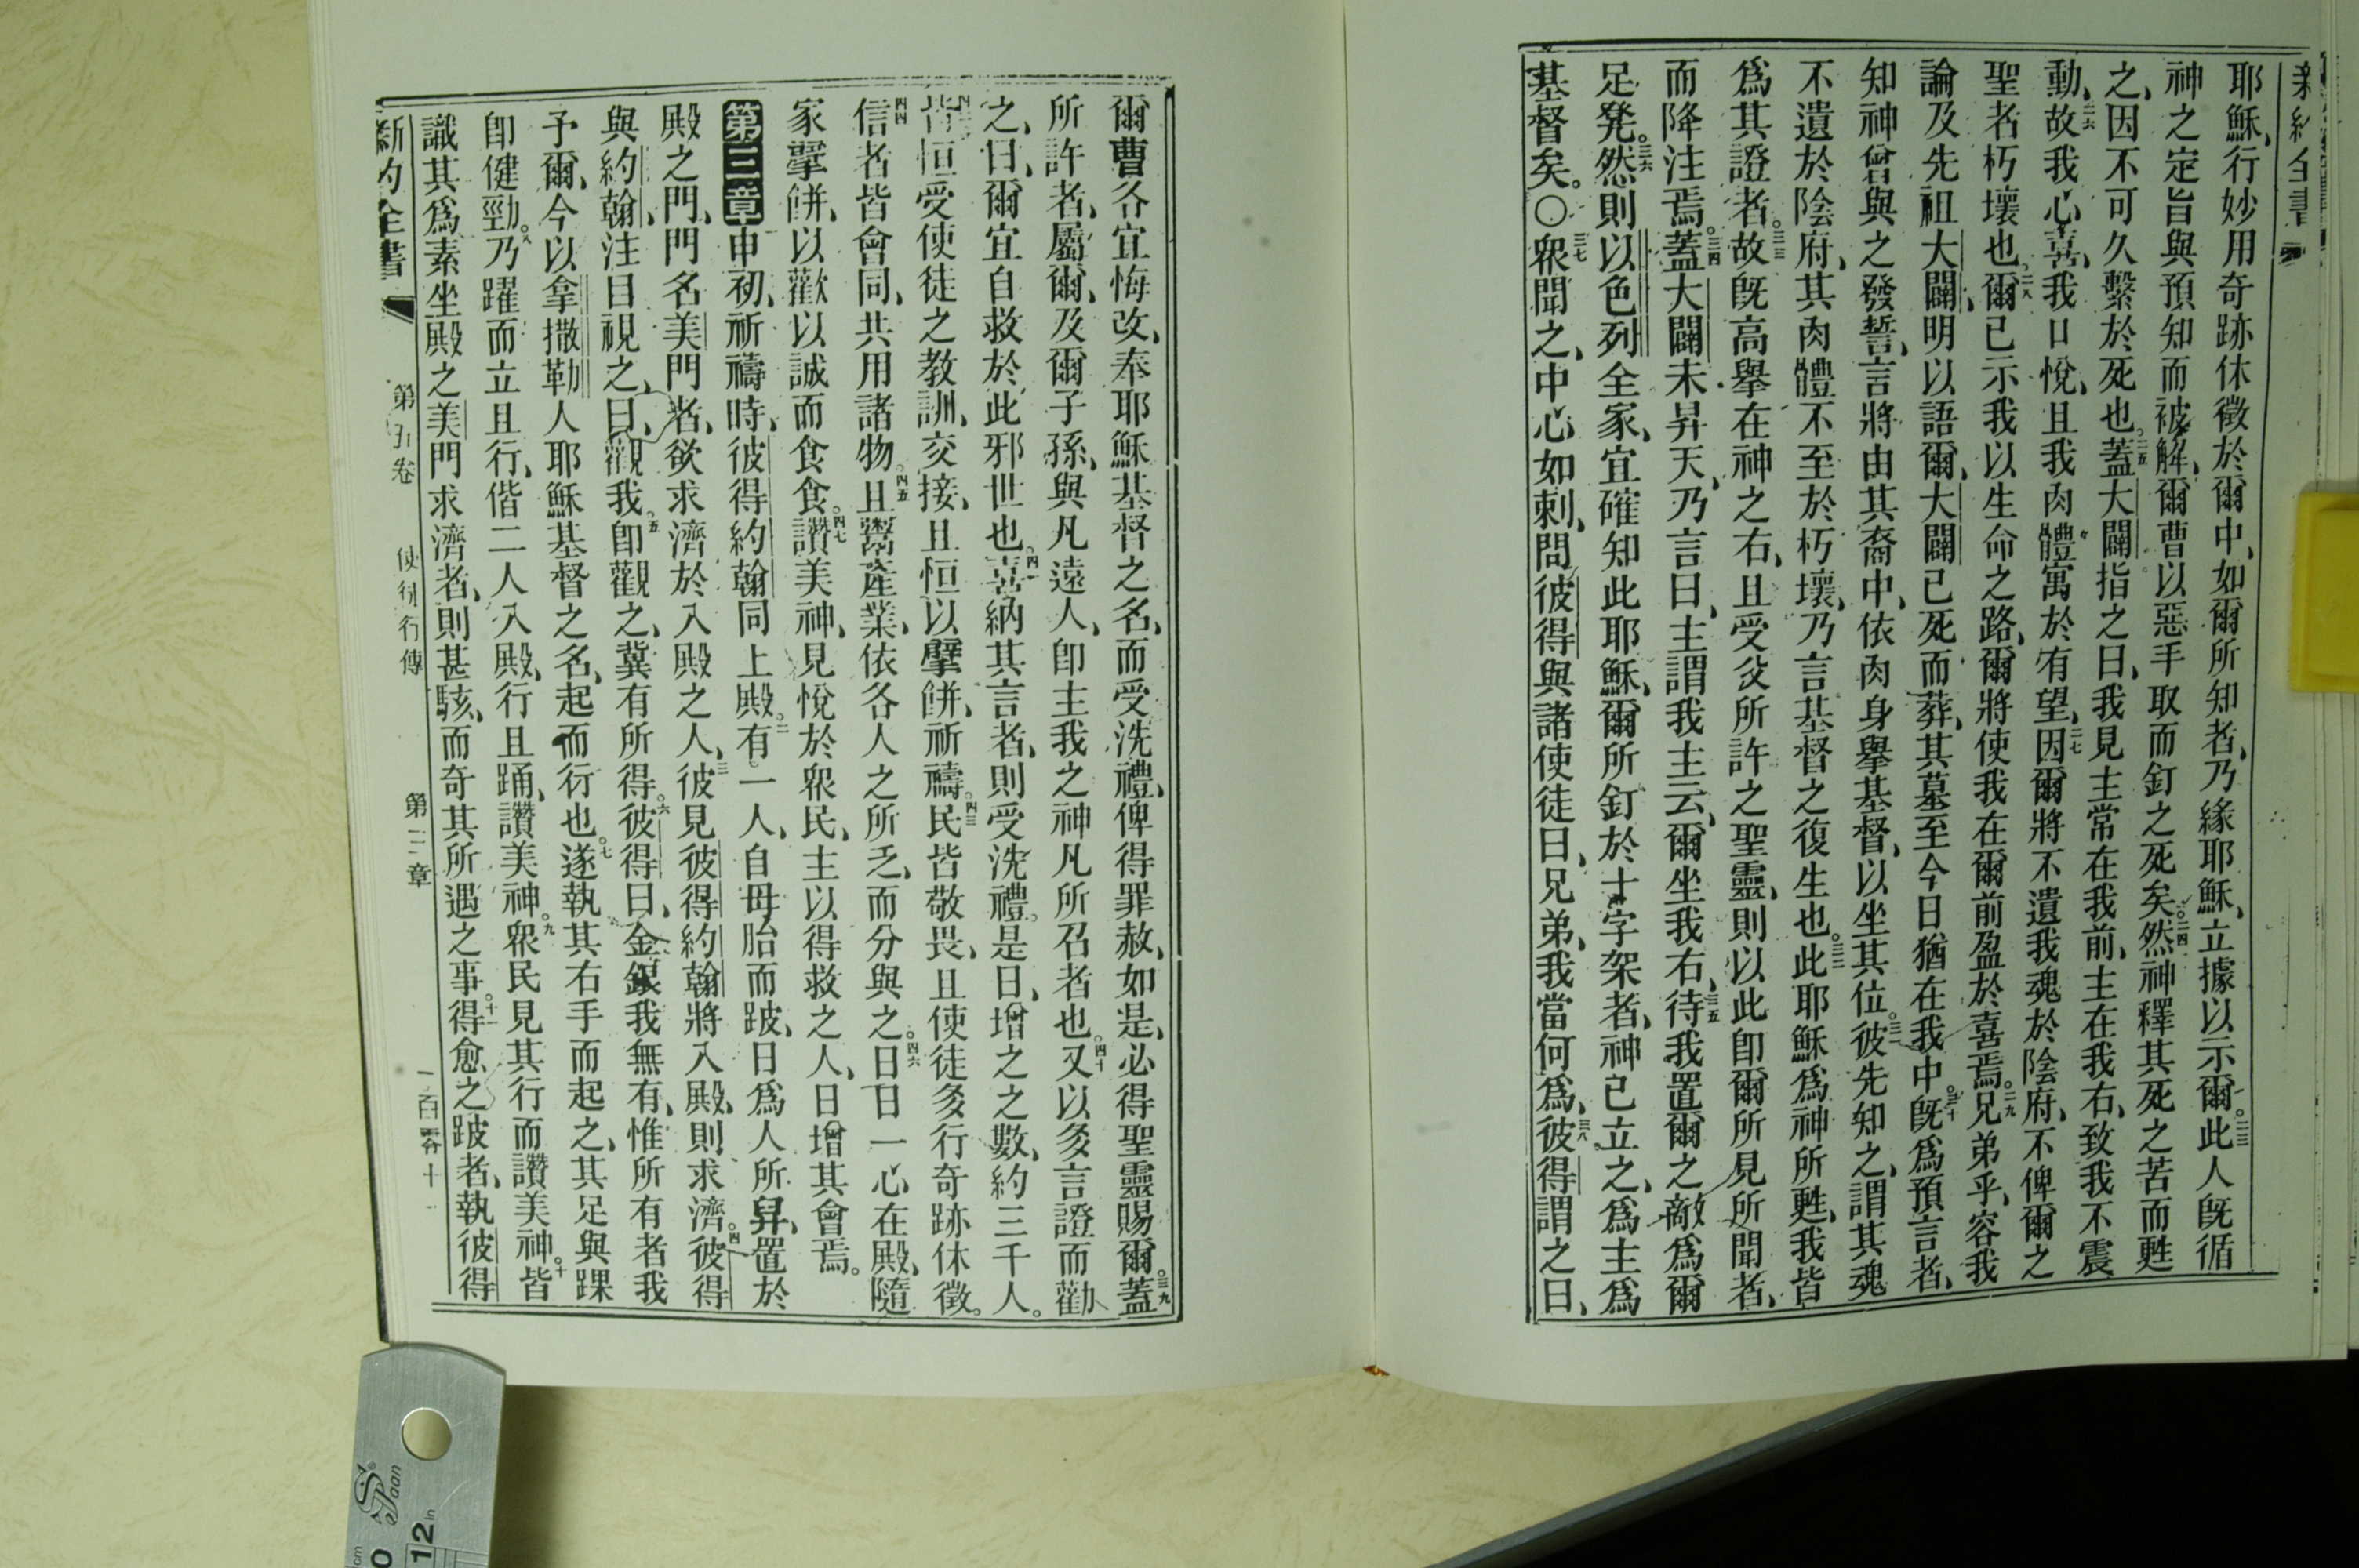 新約全書
耶穌、行妙用奇跡休徵於爾中、如爾所知者、乃緣耶穌、立據以示爾。二三此人旣循
神之定旨與預知而被解、爾曹以惡手取而釘之死矣。二四然神釋其死之苦而甦
之、因不可久繫於死也。二五蓋大闢指之曰、我見主常在我前、主在我右、致我不震
動、二六故我心喜、我口悅、且我肉體寓於有望、二七因爾將不遺我魂於陰府、不俾爾之
聖者朽壞也。二八爾已示我以生命之路、爾將使我在爾前盈於喜焉。二九兄弟乎、容我
論及先祖大闢、明以語爾、大闢已死而葬、其墓至今日猶在我中。三十旣爲預言者、
知神曾與之發誓、言將由其裔中、依肉身舉基督、以坐其位。三一彼先知之、謂其魂
不遺於陰府、其肉體不至於朽壞、乃言基督之復生也。三二此耶穌爲神所甦、我皆
爲其證者。三三故旣高舉在神之右、且受父所許之聖靈、則以此卽爾所見所聞者、
而降注焉。三四蓋大闢未昇天、乃言曰、主謂我主云、爾坐我右、三五待我置爾之敵爲爾
足凳。三六然則以色列全家、宜確知此耶穌、爾所釘於十字架者、神已立之、爲主爲
基督矣。○三七衆聞之、中心如刺、問彼得與諸使徒曰、兄弟、我當何爲、三八彼得謂之曰、
爾曹各宜悔改、奉耶穌基督之名、而受洗禮、俾得罪赦、如是、必得聖靈賜爾。三九蓋
所許者、屬爾、及爾子孫、與凡遠人、卽主我之神凡所召者也。四十又以多言證而勸
之、曰、爾宜自救於此邪世也。四一喜納其言者、則受洗禮。是日、增之之數、約三千人。
皆恒受使徒之教訓、交接、且恒以擘餅、祈禱。四三民皆敬畏、且使徒多行奇跡休徵。
四四信者皆會同、共用諸物。四五且鬻產業、依各人之所乏、而分與之。四六日日一心在殿、隨
家擘餅、以歡以誠而食食。四七讚美神、見悅於衆民、主以得救之人、日增其會焉。
第三章申初、祈禱時、彼得約翰同上殿。二有一人、自母胎而跛、日爲人所舁、置於
殿之門、門名美門者、欲求濟於入殿之人、三彼見彼得約翰將入殿、則求濟。四彼得
與約翰、注目視之、曰、觀我。五卽觀之、冀有所得。六彼得曰、金銀我無有、惟所有者我
予爾、今以拿撒勒人耶穌基督之名、起而行也。七遂執其右手而起之、其足與踝
卽健勁。八乃躍而立且行、偕二人入殿、行且踊、讚美神。九衆民見其行而讚美神。十皆
識其爲素坐殿之美門求濟者、則甚駭、而奇其所遇之事。十一得愈之跛者、執彼得
新約全書 第五卷 使徒行傳 第三章 一百零十一
Saan
cm
in
12